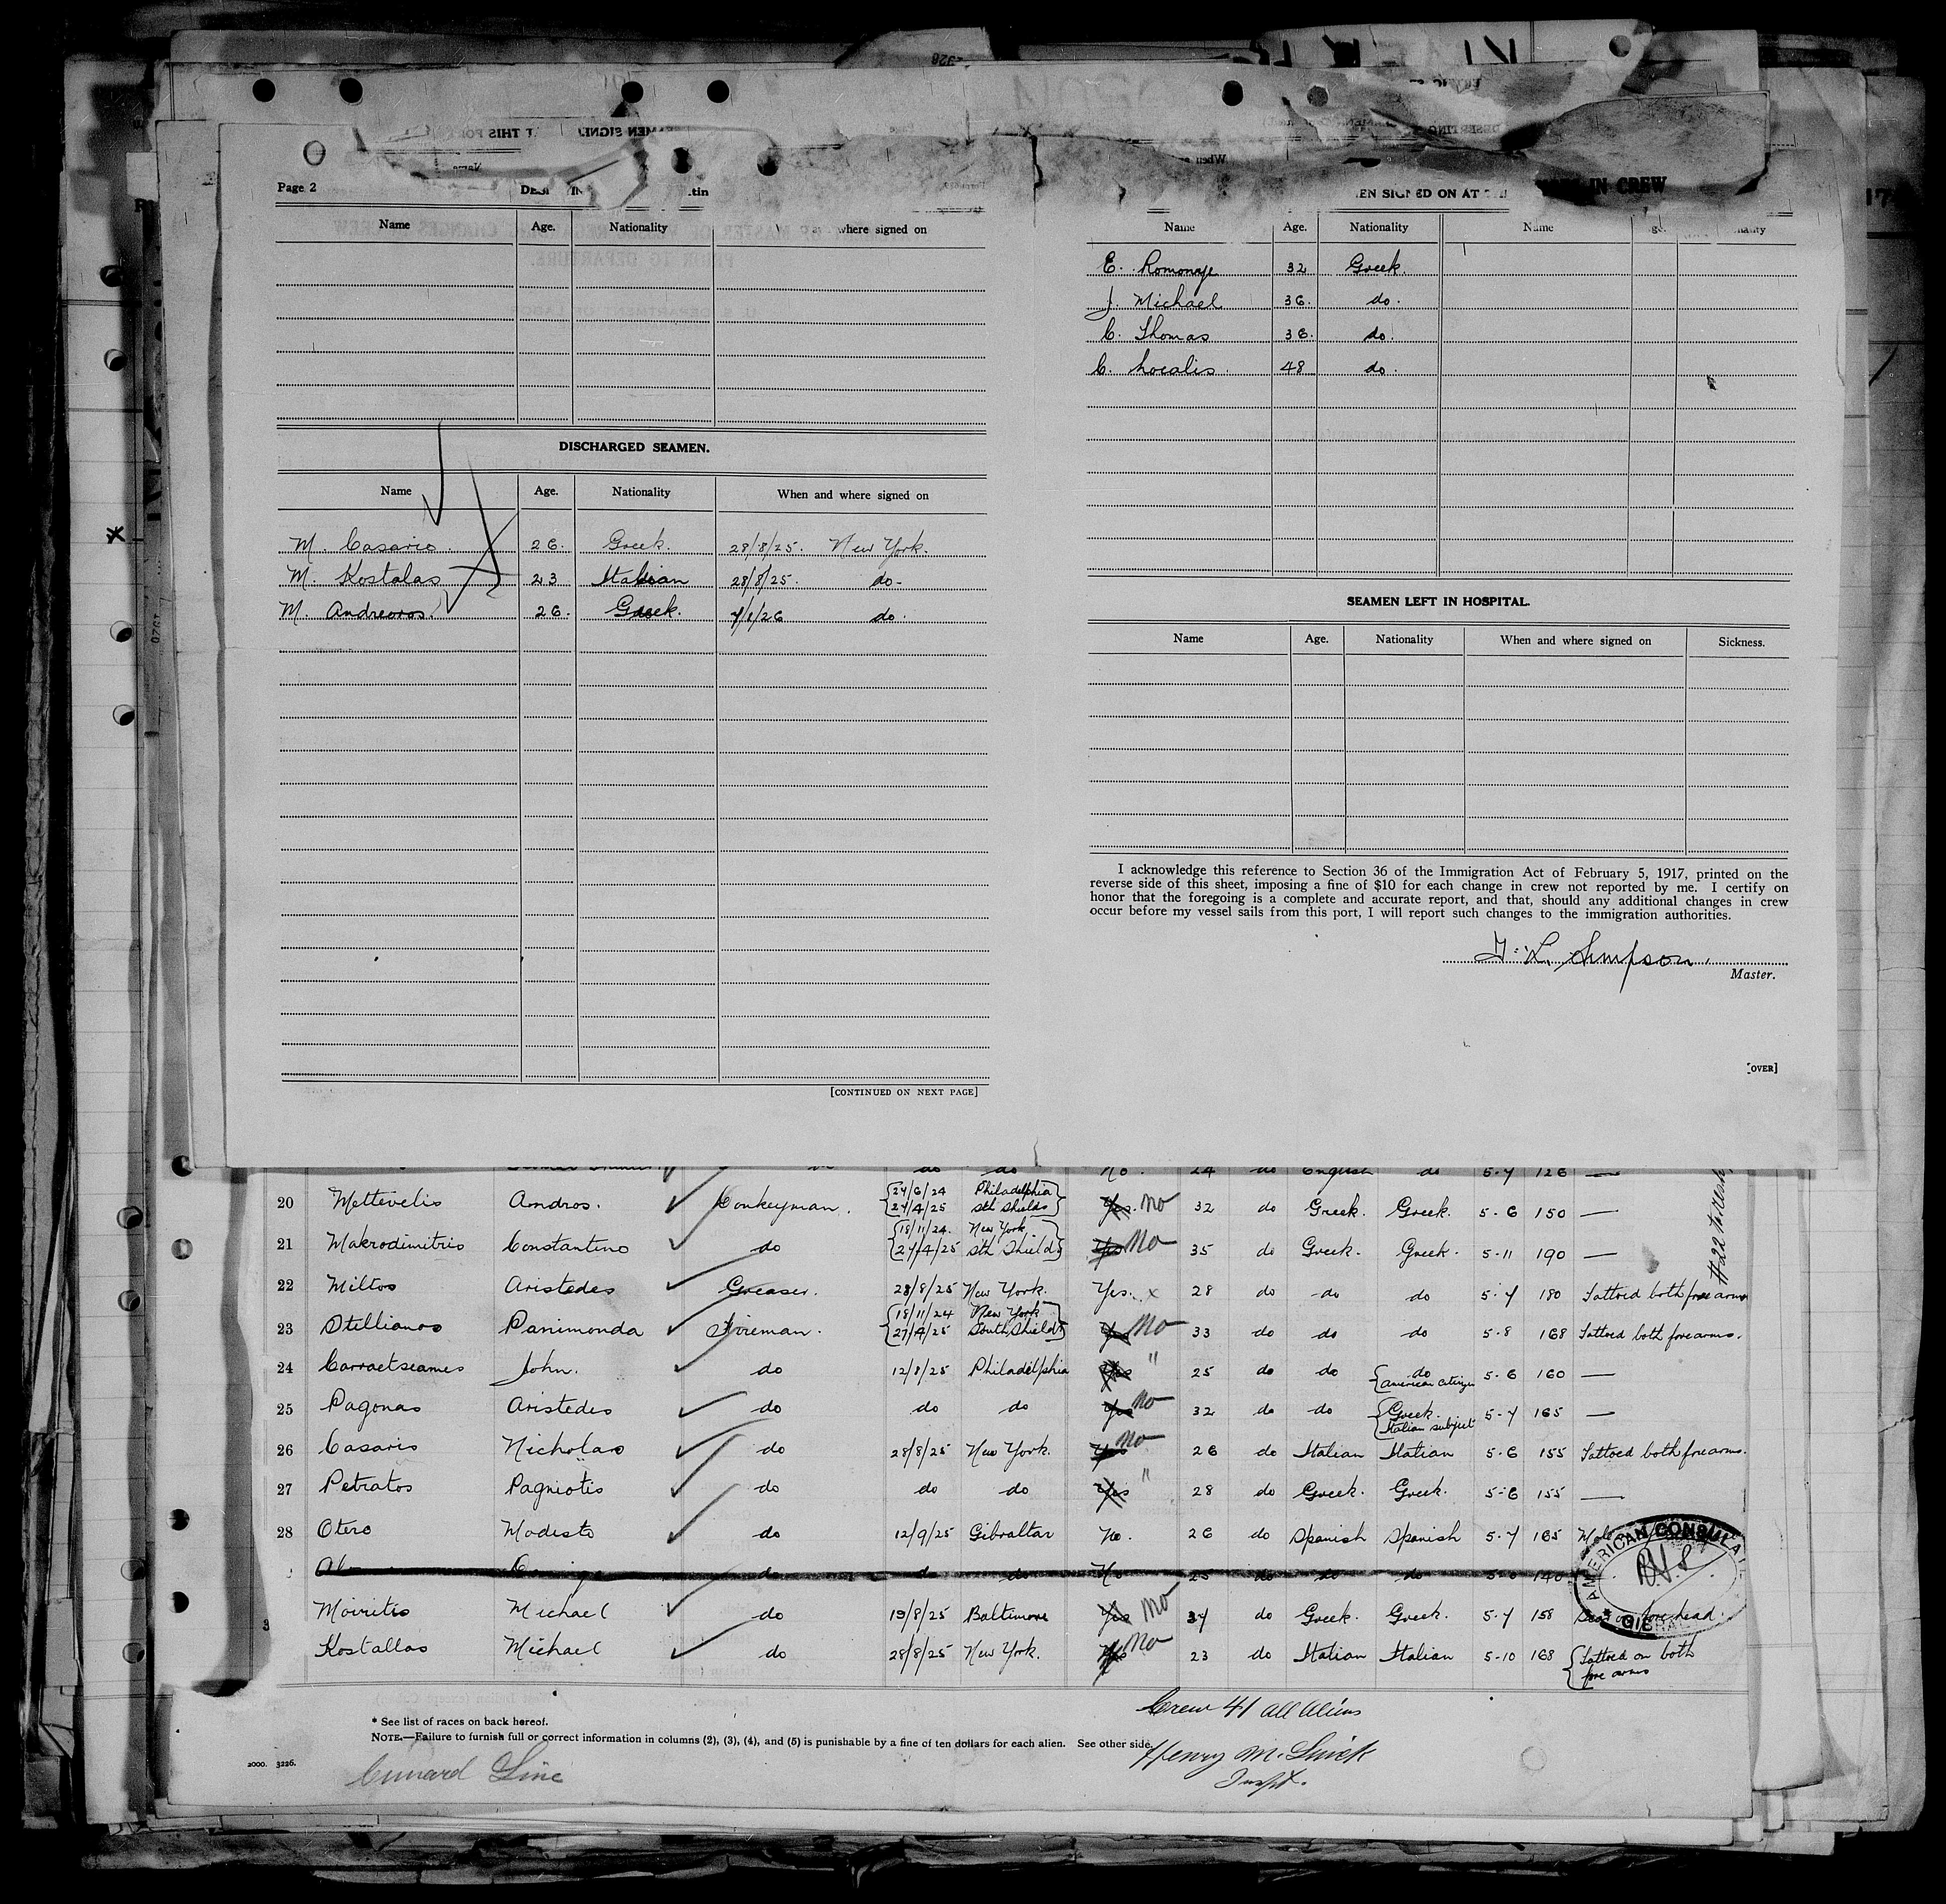 Page 2
Name Age. Nationality where signed on
DISCHARGED SEAMEN.
Name Age. Nationality When and where signed on
M. Casario. 26. Greek. 28/8/25. New York.
M. Kostalas 23 Italian 28/8/25. do-
M. Andreoros. 26. Greek. 4/1/26 do.
[CONTINUED ON NEXT PAGE]
IN CREW
EN SIGNED ON AT
Name Age. Nationality Name
E. Romonaye 32 Greek.
J. Michael 36. do.
C. Thomas 36. do.
C. 48 do.
SEAMEN LEFT IN HOSPITAL.
Name Age. Nationality When and where signed on Sickness.
I acknowledge this reference to Section 36 of the Immigration Act of February 5, 1917, printed on the
reverse side of this sheet, imposing a fine of $10 for each change in crew not reported by me. I certify on
honor that the foregoing is a complete and accurate report, and that, should any additional changes in crew
occur before my vessel sails from this port, I will report such changes to the immigration authorities.
L. Simpson.
Master.
[OVER]
do do No. 24 do English do 5-7 126 —
20 Mettevelis Andros. Donkeyman. 24/6/24 Philadelphia Yes. No 32 do Greek. Greek. 5-6 150 —
27/4/25 Sth Shields
21 Makrodimitris Constantino do 18/11/24. New York Yes No 35 do Greek. Greek. 5-11 190 —
27/4/25 Sth Shields
22 Miltos Aristedes Greaser. 28/8/25 New York. Yes. x 28 do do do 5-7 180 Tattoed both fore arms
23 Stellianos Panimonda Fireman. 18/11/24 New York Yes No 33 do do do 5-8 168 Tattoed both forearms.
27/4/25 South Shields
24 Carraetseames John. do 12/8/25 Philadelphia Yes " 25 do do do 5-6 160 —
American Citizen
25 Pagonas Aristedes do do do Yes No 32 do do Greek. 5-7 165 —
Italian subject
26 Casaris Nicholas do 28/8/25 New York. Yes No 26 do Italian Italian 5-6 155 Tattoed both forearms.
27 Petratos Pagniotis do do do Yes " 28 do Greek. Greek. 5-6 155 —
28 Otero Modesto do 12/9/25 Gibraltar No. 26 do Spanish Spanish 5-7 165
do do do No 25 do do do 140
Moiritis Michael do 19/8/25 Baltimore Yes No 34 do Greek. Greek. 5-7 158 Scar on forehead.
Kostallas Michael do 28/8/25 New York. Yes No 23 do Italian Italian 5-10 168 Tattoed on both
fore arms
AMERICAN CONSULA
GIBRA
* See list of races on back hereof.
NOTE.—Failure to furnish full or correct information in columns (2), (3), (4), and (5) is punishable by a fine of ten dollars for each alien. See other side.
2000. 3226.
Cunard Line
Crew 41 all aliens
Henry M.
Inspt.